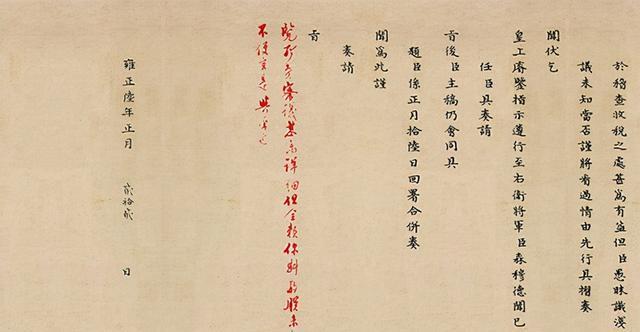 於稽查收稅之處甚爲有益但臣愚昧識淺
議未知當否謹將看過情由先行具摺奏
聞伏乞
皇上睿鑒指示遵行至右衛將軍臣森穆德聞已
任臣具奏請
旨後臣主稿仍會同具
題臣係正月拾陸日回署合併奏
聞爲此謹
奏請
旨
覽所奏議甚詳細但全賴你斟酌朕
不便定是與
雍正陸年正月貳拾貳日